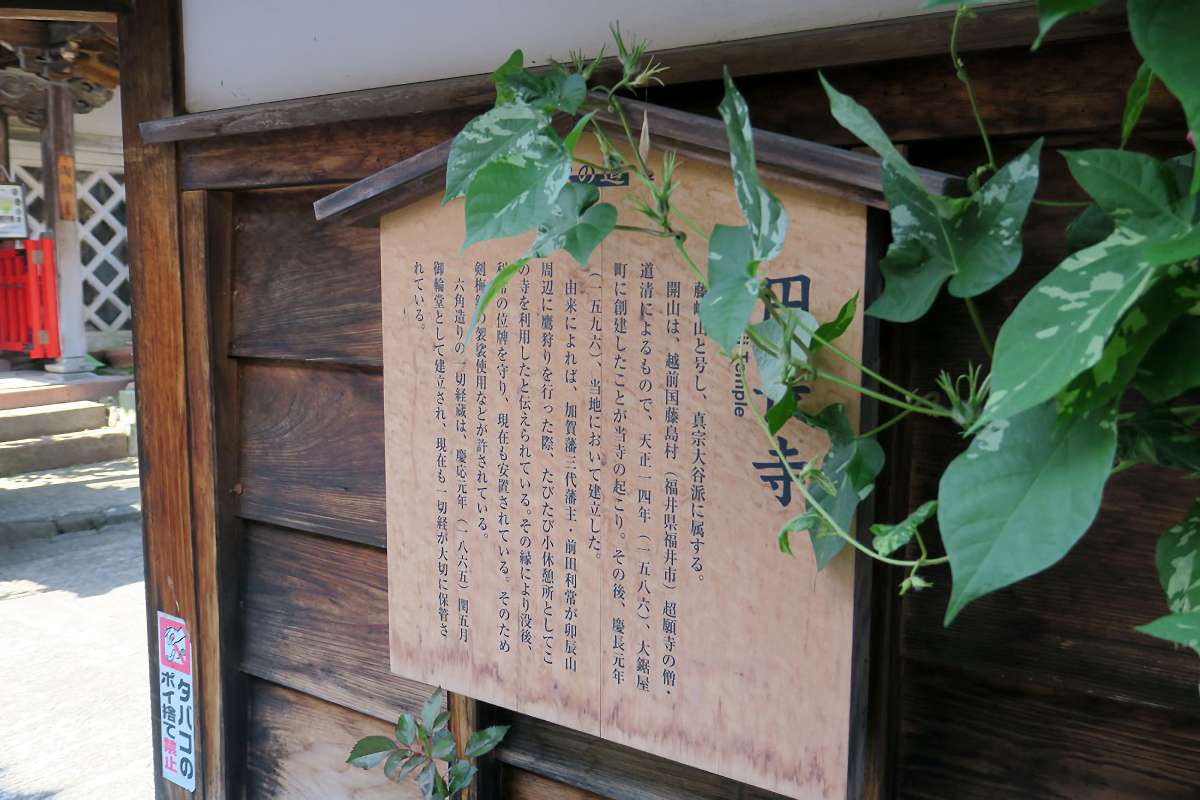 の道
寺
Temple
藤嶋山と号し、真宗大谷派に属する。
開山は、越前国藤島村（福井県福井市）超願寺の僧・
道清によるもので、天正一四年（一五八六）、大鋸屋
町に創建したことが当寺の起こり。その後、慶長元年
（一五九六）、当地において建立した。
由来によれば、加賀藩三代藩主・前田利常が卯辰山
周辺に鷹狩りを行った際、たびたび小休憩所としてこ
の寺を利用したと伝えられている。その縁により没後、
利常の位牌を守り、現在も安置されている。そのため
剣梅の袈裟使用などが許されている。
六角造りの一切経蔵は、慶応元年（一八六五）閏五月
御輪堂として建立され、現在も一切経が大切に保管さ
れている。
タバコの
ポイ捨て禁止